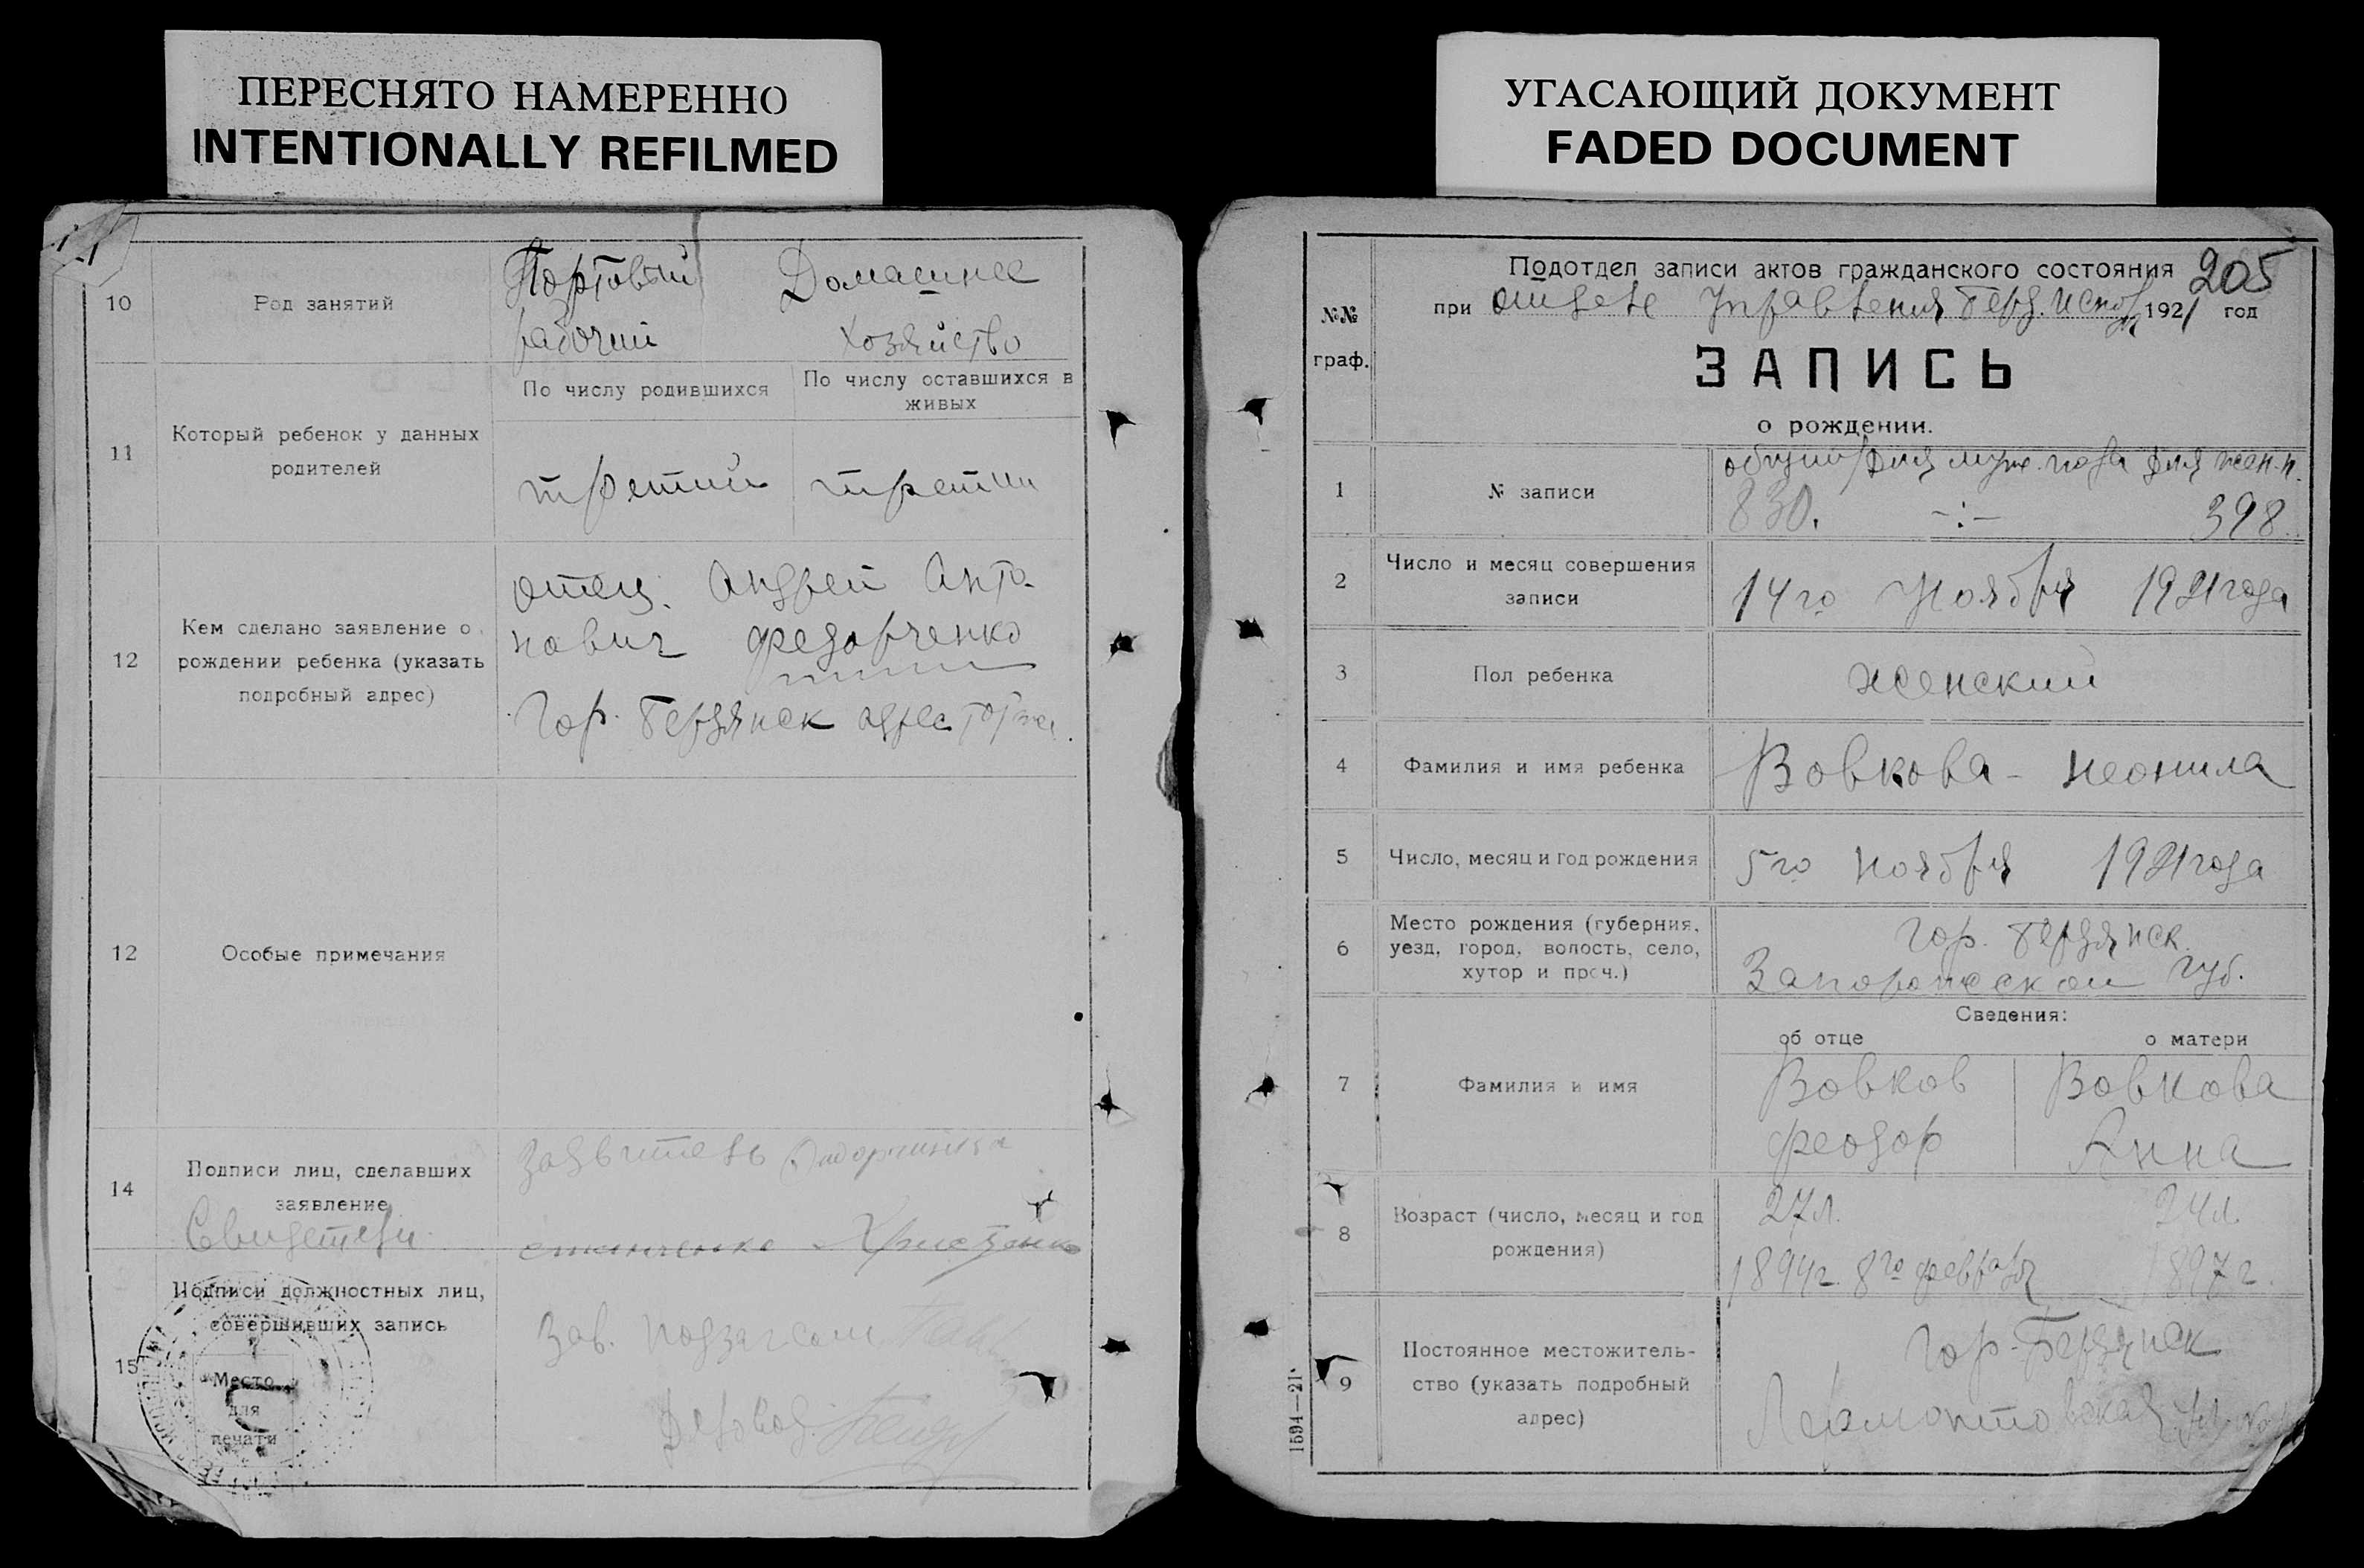 ПЕРЕСНЯТО НАМЕРЕННО
INTENTIONALLY REFILMED
10
Род занятий
Портовый
рабочий
Домашнее
хозяйство
11
Который ребенок у данных
родителей
По числу родившихся
По числу оставшихся в
живых
третий
третий
12
Кем сделано заявление о
рождении ребенка (указать
подробный адрес)
отец. Андрей Анто-
нович Федорченко
Гор. Бердянск адрес
12
Особые примечания
14
Подписи лиц, сделавших
заявление
Свидетели
заявитель
15
Подписи должностных лиц,
совершивших запись
Место
для
печати
Зав. подзагсом
УГАСАЮЩИЙ ДОКУМЕНТ
FADED DOCUMENT
205
№№
граф.
Подотдел записи актов гражданского состояния
при отделе Управления Берд. 1921 год
ЗАПИСЬ
о рождении.
1
№ записи
общий для муж. пола для жен. п.
830. -:- 398.
2
Число и месяц совершения
записи
14го Ноября 1921 года
3
Пол ребенка
женский
4
Фамилия и имя ребенка
Вовкова - Неонила
5
Число, месяц и год рождения
5го ноября 1921 года
6
Место рождения (губерния,
уезд, город, волость, село,
хутор и проч.)
Гор. Бердянск.
Запорожской губ.
Сведения:
об отце
о матери
7
Фамилия и имя
Вовков
Феодор
Вовкова
Анна
8
Возраст (число, месяц и год
рождения)
27л.
1894г. 8го февраля
24л.
1897г.
9
Постоянное местожитель-
ство (указать подробный
адрес)
Гор. Бердянск
Лермонтовская ул. №
1594—21.